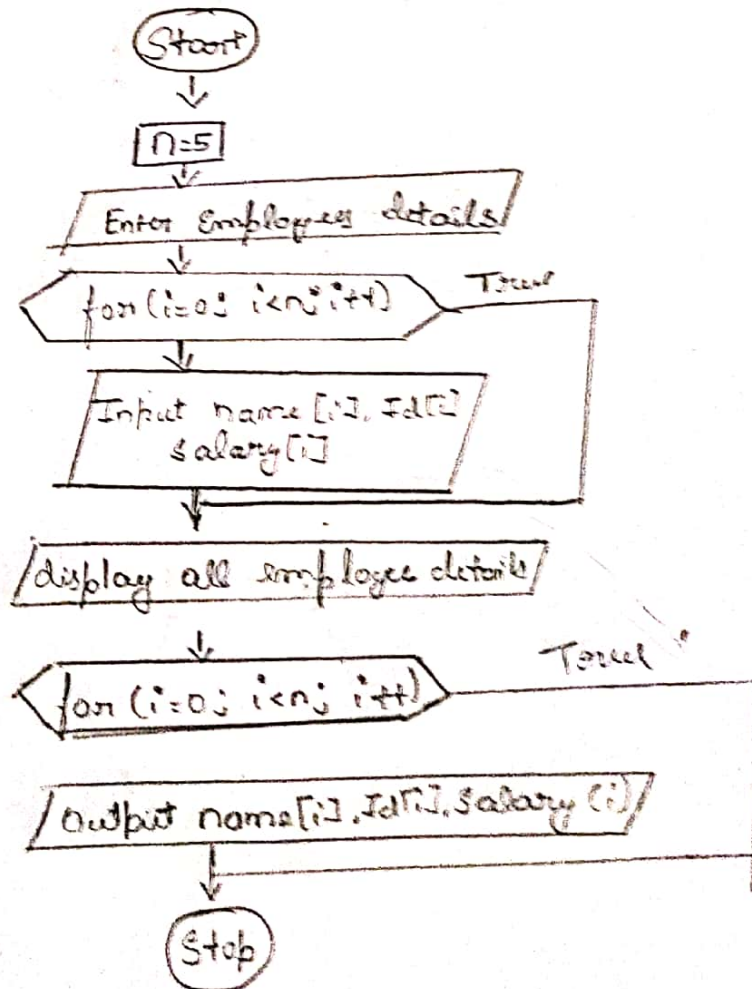 Start
n=5
Enter Employees details
for (i=0; i<n; i++)
True
Input name [i], Id[i]
salary[i]
display all employee details
True
for (i=0; i<n; i++)
Output name[i], Id[i], salary (i)
Stop